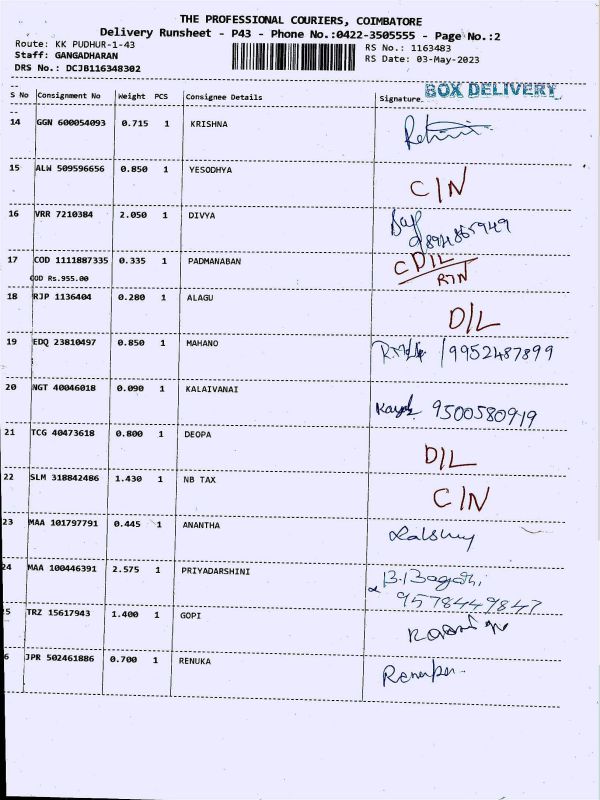 THE PROFESSIONAL COURIERS, COIMBATORE
Delivery Runsheet - P43 - Phone No.:0422-3505555 - Page No.:2
Route: KK PUDHUR-1-43
RS No.: 1163483
Staff: GANGADHARAN
RS Date: 03-May-2023
DRS No.: DCJB116348302
BOX DELIVERY
S No Consignment No Weight PCS Consignee Details Signature
14 GGN 600054093 0.715 1 KRISHNA
15 ALW 509596656 0.850 1 YESODHYA C/N
16 VRR 7210384 2.050 1 DIVYA
17 COD 1111887335 0.335 1 PADMANABAN CD/L
COD Rs.955.00 RTN
18 RJP 1136404 0.280 1 ALAGU D/L
19 EDQ 23810497 0.850 1 MAHANO 9952487899
20 NGT 40046018 0.090 1 KALAIVANAI 9500580919
21 TCG 40473618 0.800 1 DEOPA D/L
22 SLM 318842486 1.430 1 NB TAX C/N
23 MAA 101797791 0.445 1 ANANTHA
24 MAA 100446391 2.575 1 PRIYADARSHINI
9578449847
5 TRZ 15617943 1.400 1 GOPI
6 JPR 502461886 0.700 1 RENUKA